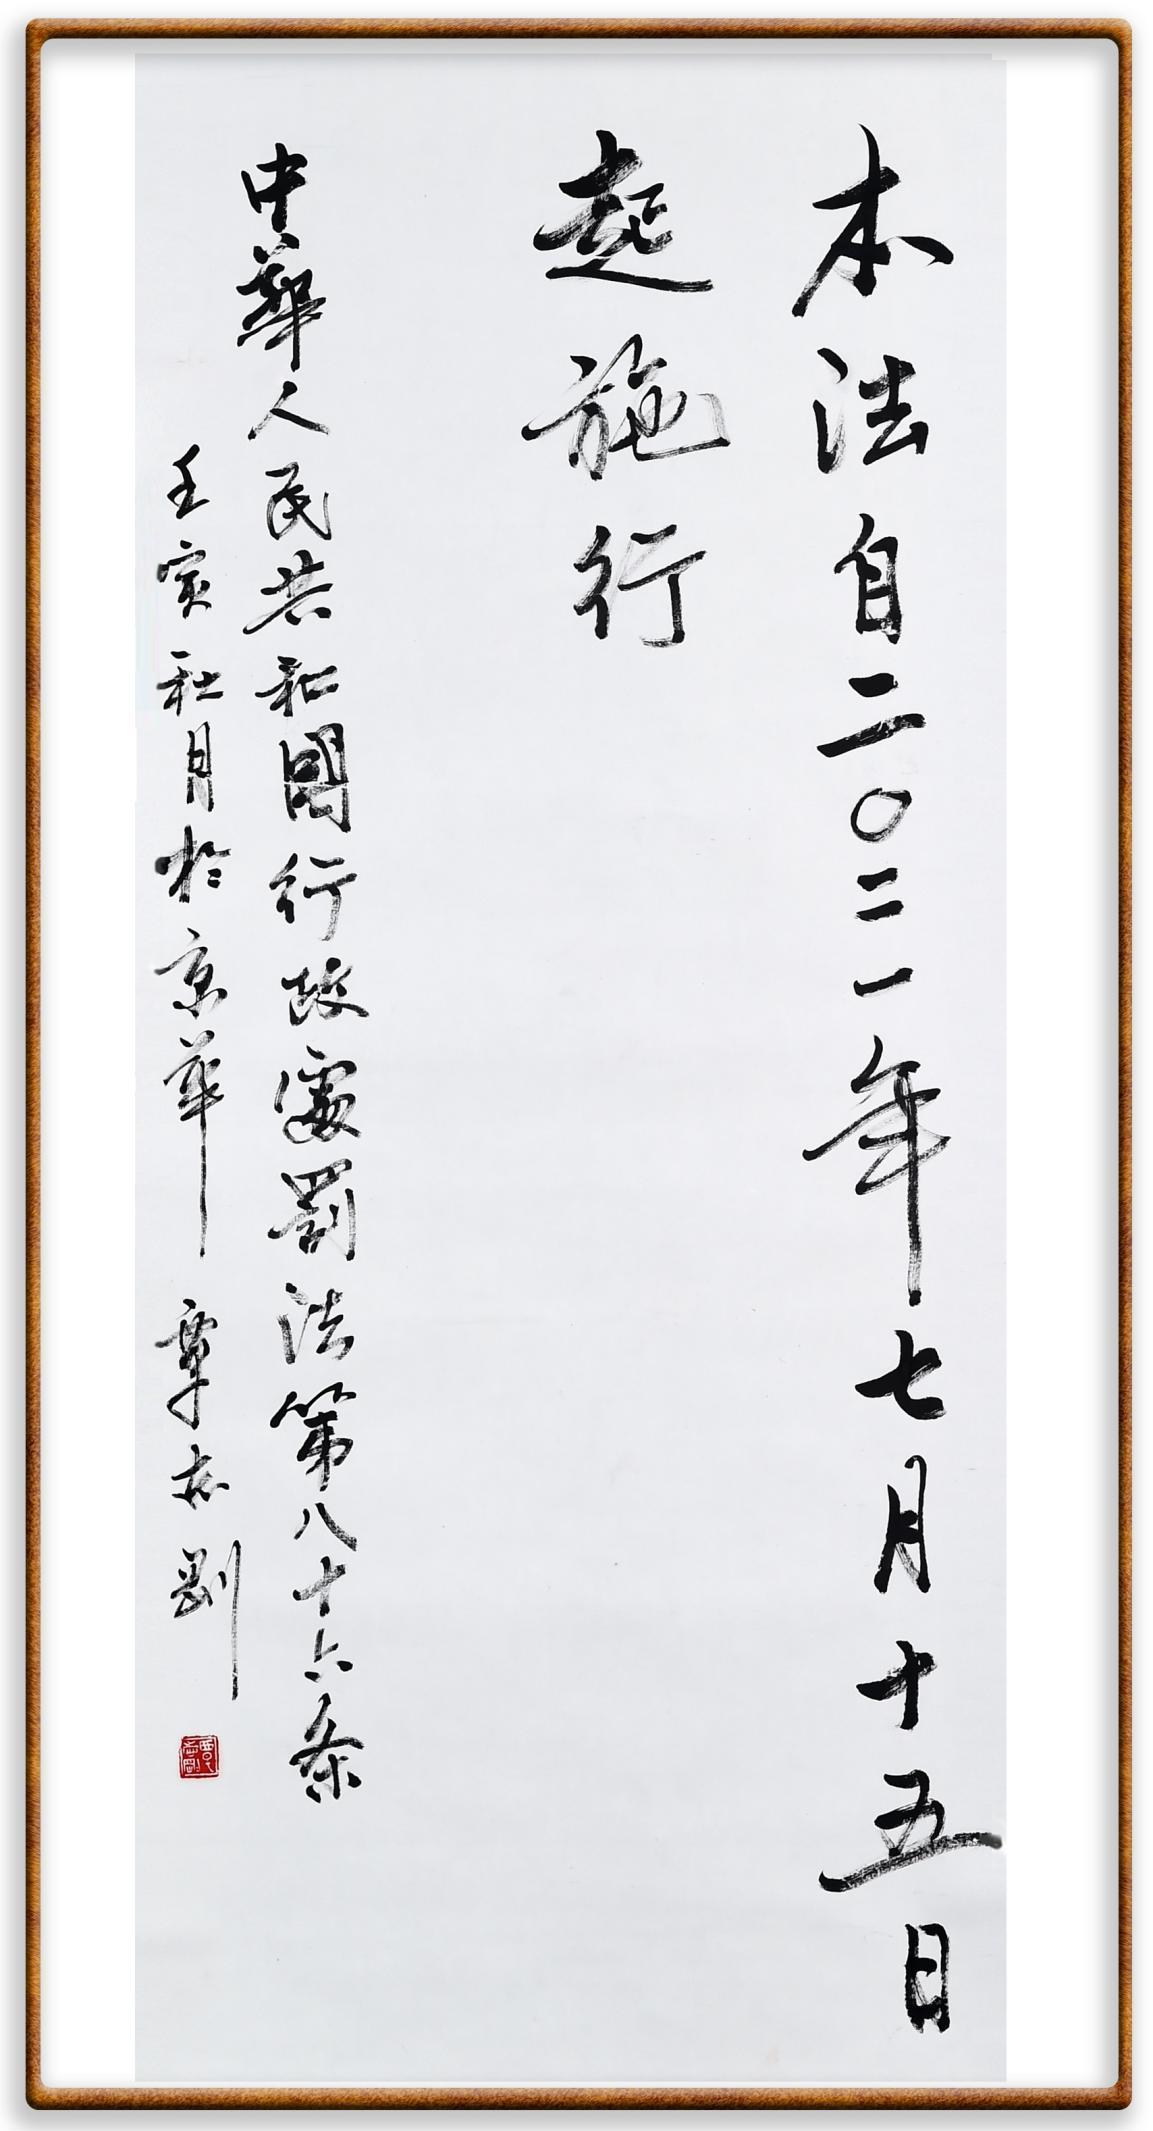 本法自二〇二一年七月十五日
起施行
中華人民共和國行政處罰法第八十六条
壬寅秋月於京華 覃志剛
覃志剛